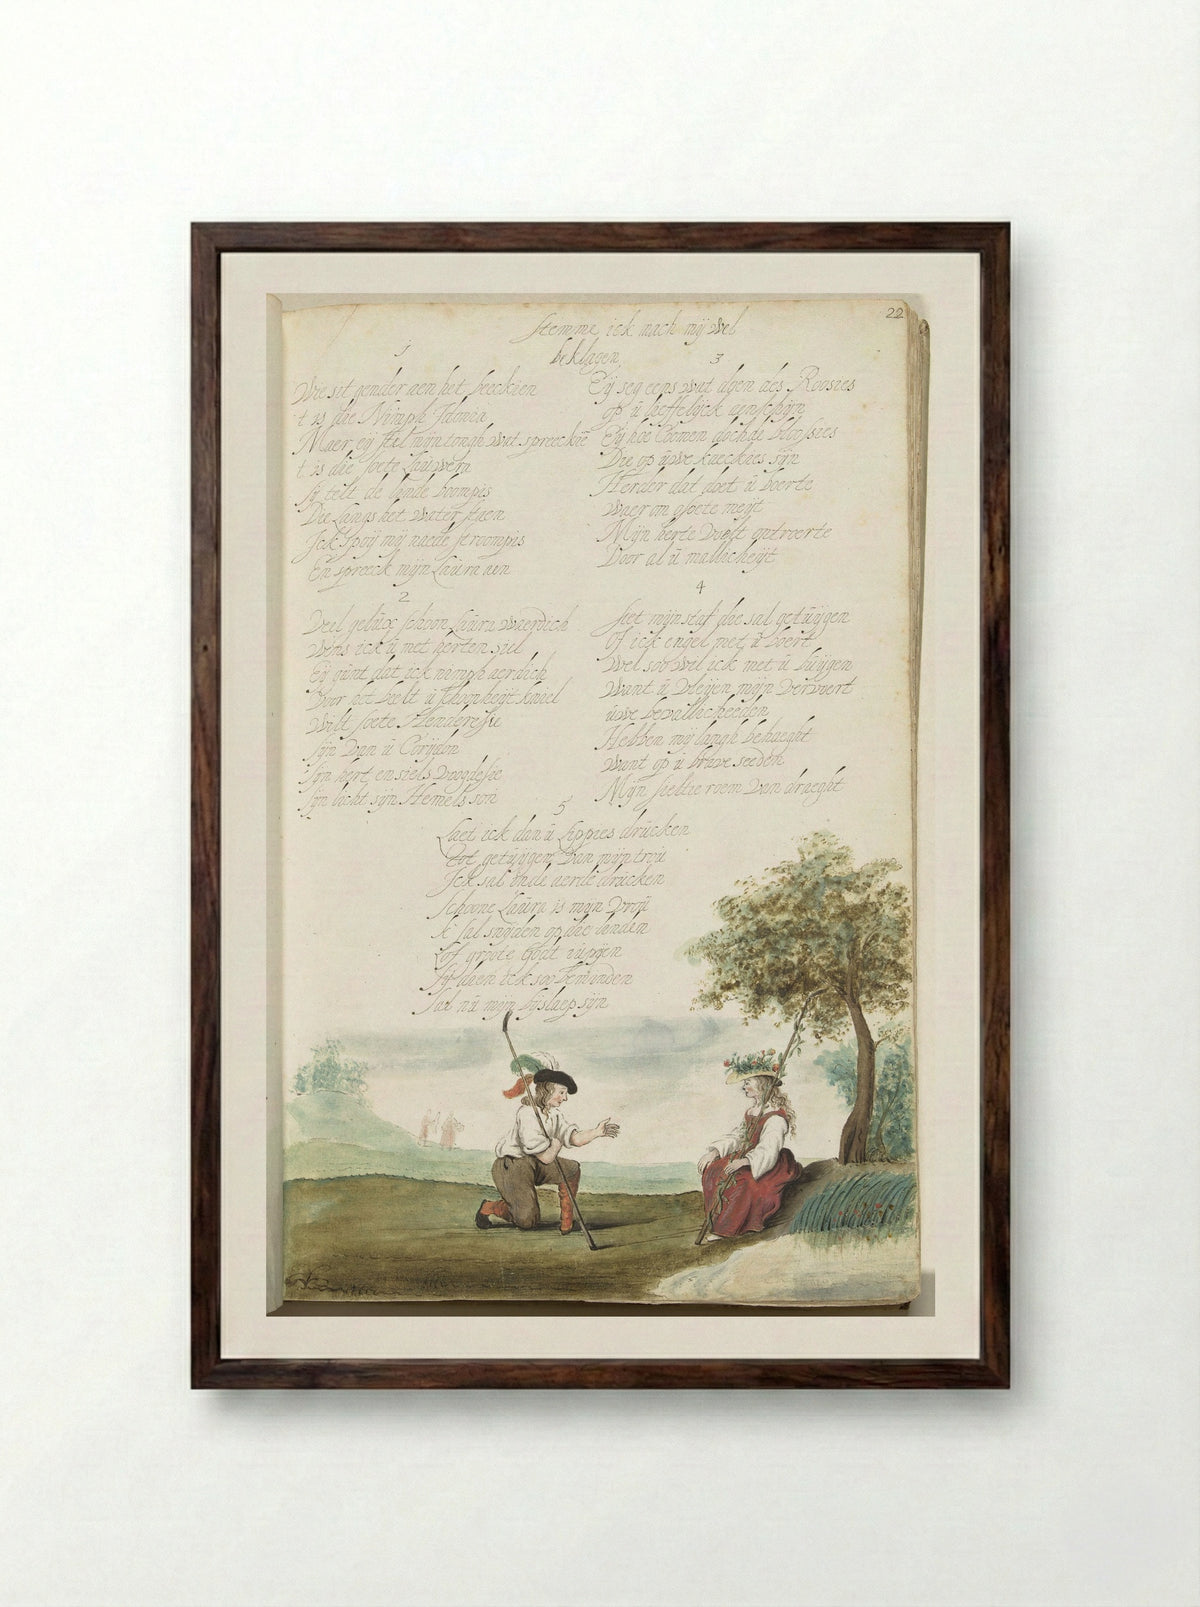 22
Stemme ick mach mij wel
beklagen
1
Wie sit gender aen het beeckien
t is die Nimph
Maer eij stel mijn tongh wat spreeckie
t is die soete
sij telt de linde boompis
Die langs het water staen
Ick spoij mij naede stroompis
En spreeck mijn Laura aen
2
Veel gelück schoon Laura waerdich
Wens ick ü met herten
Eij günt dat ick nimph aerdich
Door ü schoonheijt
Wilt soete Herderesse
sijn van ü Corijdon
sijn hert en siels Voogdesse
sijn licht sijn Hemels son
3
Eij seg eens wat al des Roosies
op ü lieffelijck aenschijn
Eij hoe Coomen dochdi bloosies
Die op üwe kaeckies sijn
Herder dat doet ü boerte
Waerom soete meijt
Mijn herte Vuelt ontroerte
Door al ü mallicheijt
4
Siet mijn staf die sal getüijgen
Of ick engel met ü boert
Wel soo wel ick met ü
Want ü mijn vervoert
üwe bevallicheeden
Hebben mij langh behaeght
Want op ü brave seeden
Mijn sieltie roem van draeght
5
Laet ick dan ü Lippies drücken
Tot getuijgen van mijn troü
Ick sal ind aerde drücken
schoone Laüra is mijn Vroü
Ik sal snijden op die linden
Lof groote Godt
sij daer ick soo beminden
sal nü mijn bijslaep sijn